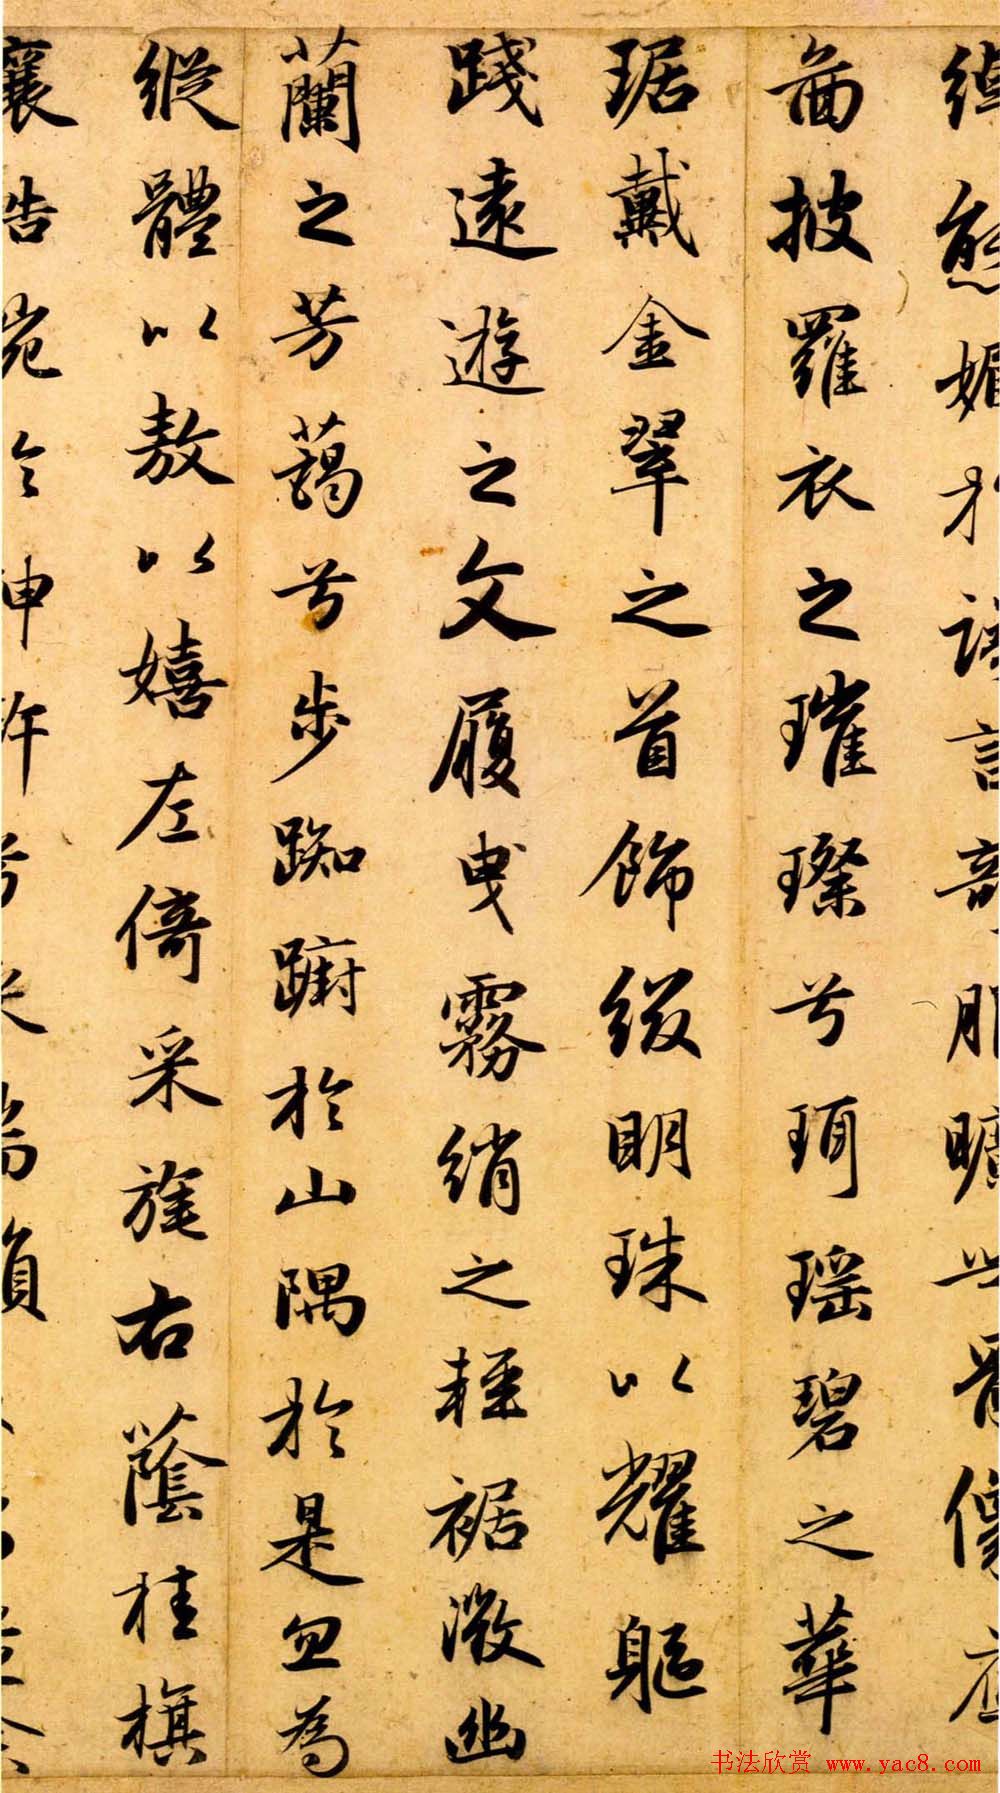 綽態媚於語言奇服曠世骨像應
啚披羅衣之璀璨兮珥瑤碧之華
琚戴金翠之首飾綴明珠以耀軀
踐遠遊之文履曳霧綃之輕裾微幽
蘭之芳藹兮步踟躕於山隅於是忽焉
縱體以敖以嬉左倚采旄右蔭桂旗
攘皓腕於神滸兮采湍瀨
书法欣赏 www.yac8.com